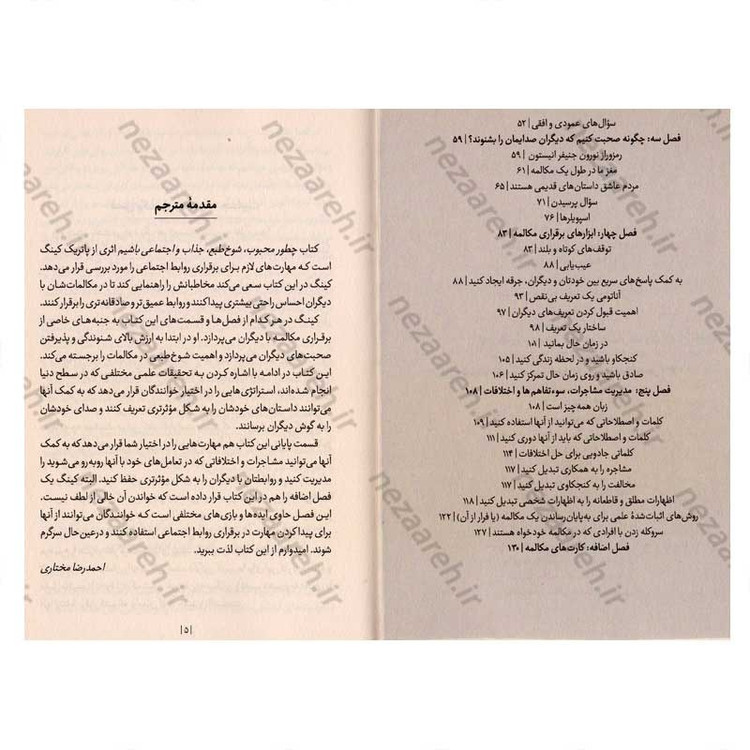 سؤال‌های عمودی و افقی | ۵۲
فصل سه: چگونه صحبت کنیم که دیگران صدایمان را بشنوند؟ | ۵۹
رمزوراز نورون جنیفر انیستون | ۵۹
مغز ما در طول یک مکالمه | ۶۱
مردم عاشق داستان‌های قدیمی هستند | ۶۵
سؤال پرسیدن | ۷۱
اسپویلرها | ۷۶
فصل چهار: ابزارهای برقراری مکالمه | ۸۳
توقف‌های کوتاه و بلند | ۸۳
عیب‌یابی | ۸۸
به کمک پاسخ‌های سریع بین خودتان و دیگران، جرقه ایجاد کنید | ۸۸
آناتومی یک تعریف بی‌نقص | ۹۳
اهمیت قبول کردن تعریف‌های دیگران | ۹۷
ساختار یک تعریف | ۹۸
در زمان حال بمانید |
کنجکاو باشید و در لحظه زندگی کنید | ۱۰۵
صادق باشید و روی زمان حال تمرکز کنید | ۱۰۶
فصل پنج: مدیریت مشاجرات، سوءتفاهم‌ها و اختلافات | ۱۰۸
زبان همه‌چیز است | ۱۰۸
کلمات و اصطلاحاتی که می‌توانید از آنها استفاده کنید | ۱۰۹
کلمات و اصطلاحاتی که باید از آنها دوری کنید | ۱۱۱
کلماتی جادویی برای حل اختلافات | ۱۱۴
مشاجره را به همکاری تبدیل کنید | ۱۱۷
مخالفت را به کنجکاوی تبدیل کنید | ۱۱۷
اظهارات مطلق و قاطعانه را به اظهارات شخصی تبدیل کنید | ۱۱۸
روش‌های اثبات‌شدهٔ علمی برای به‌پایان‌رساندن یک مکالمه (یا فرار از آن) | ۱۲۲
سروکله زدن با افرادی که در مکالمه خودخواه هستند | ۱۲۷
فصل اضافه: کارت‌های مکالمه | ۱۳۰
مقدمهٔ مترجم
کتاب چطور محبوب، شوخ‌طبع، جذاب و اجتماعی باشیم اثری از پاتریک کینگ
است که مهارت‌های لازم برای برقراری روابط اجتماعی را مورد بررسی قرار می‌دهد.
کینگ در این کتاب سعی می‌کند مخاطبانش را راهنمایی کند تا در مکالمات‌شان با
دیگران احساس راحتی بیشتری پیدا کنند و روابط عمیق‌تر و صادقانه‌تری را برقرار کنند.
کینگ در هر کدام از فصل‌ها و قسمت‌های این کتاب به جنبه‌های خاصی از
برقراری مکالمه با دیگران می‌پردازد. او در ابتدا به ارزش بالای شنوندگی و پذیرفتن
صحبت‌های دیگران می‌پردازد و اهمیت شوخ‌طبعی در مکالمات را برجسته می‌کند.
این کتاب در ادامه با اشاره کردن به تحقیقات علمی مختلفی که در سطح دنیا
انجام شده‌اند، استراتژی‌هایی را در اختیار خوانندگان قرار می‌دهد که به کمک آنها
می‌توانند داستان‌های خودشان را به شکل مؤثرتری تعریف کنند و صدای خودشان
را به گوش دیگران برسانند.
قسمت پایانی این کتاب هم مهارت‌هایی را در اختیار شما قرار می‌دهد که به کمک
آنها می‌توانید مشاجرات و اختلافاتی که در تعامل‌های خود با آنها روبه‌رو می‌شوید را
مدیریت کنید و روابطتان با دیگران را به شکل مؤثرتری حفظ کنید. البته کینگ یک
فصل اضافه را هم در این کتاب قرار داده است که خواندن آن خالی از لطف نیست.
این فصل حاوی ایده‌ها و بازی‌های مختلفی است که خوانندگان می‌توانند از آنها
برای پیدا کردن مهارت در برقراری روابط اجتماعی استفاده کنند و درعین حال سرگرم
شوند. امیدوارم از این کتاب لذت ببرید.
احمدرضا مختاری
|۵|
nezaareh.ir